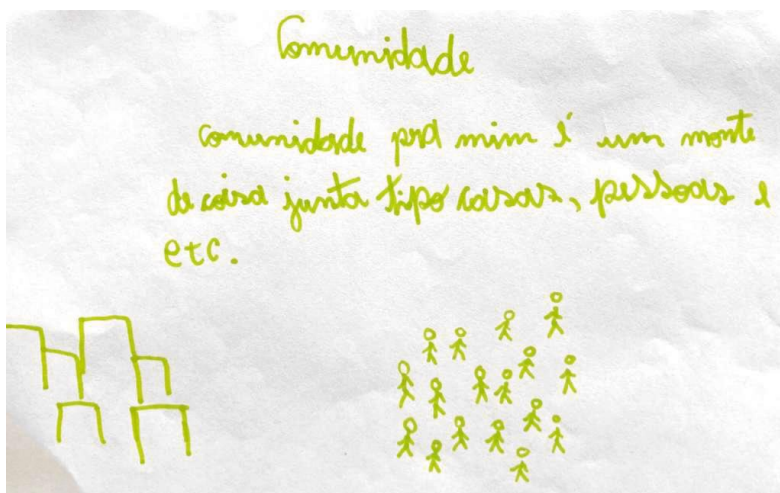 Comunidade
comunidade pra mim é um monte
de coisa junta tipo casas, pessoas e
etc.